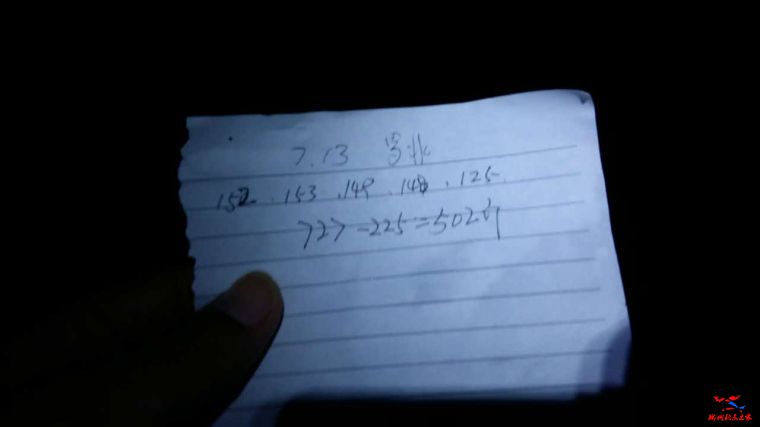 7.13
152 . 153 . 149 . 148 . 125.
727-225=502斤